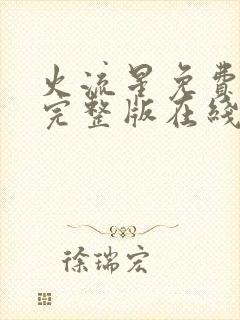 火流星免费
完整版在线
徐瑞宏